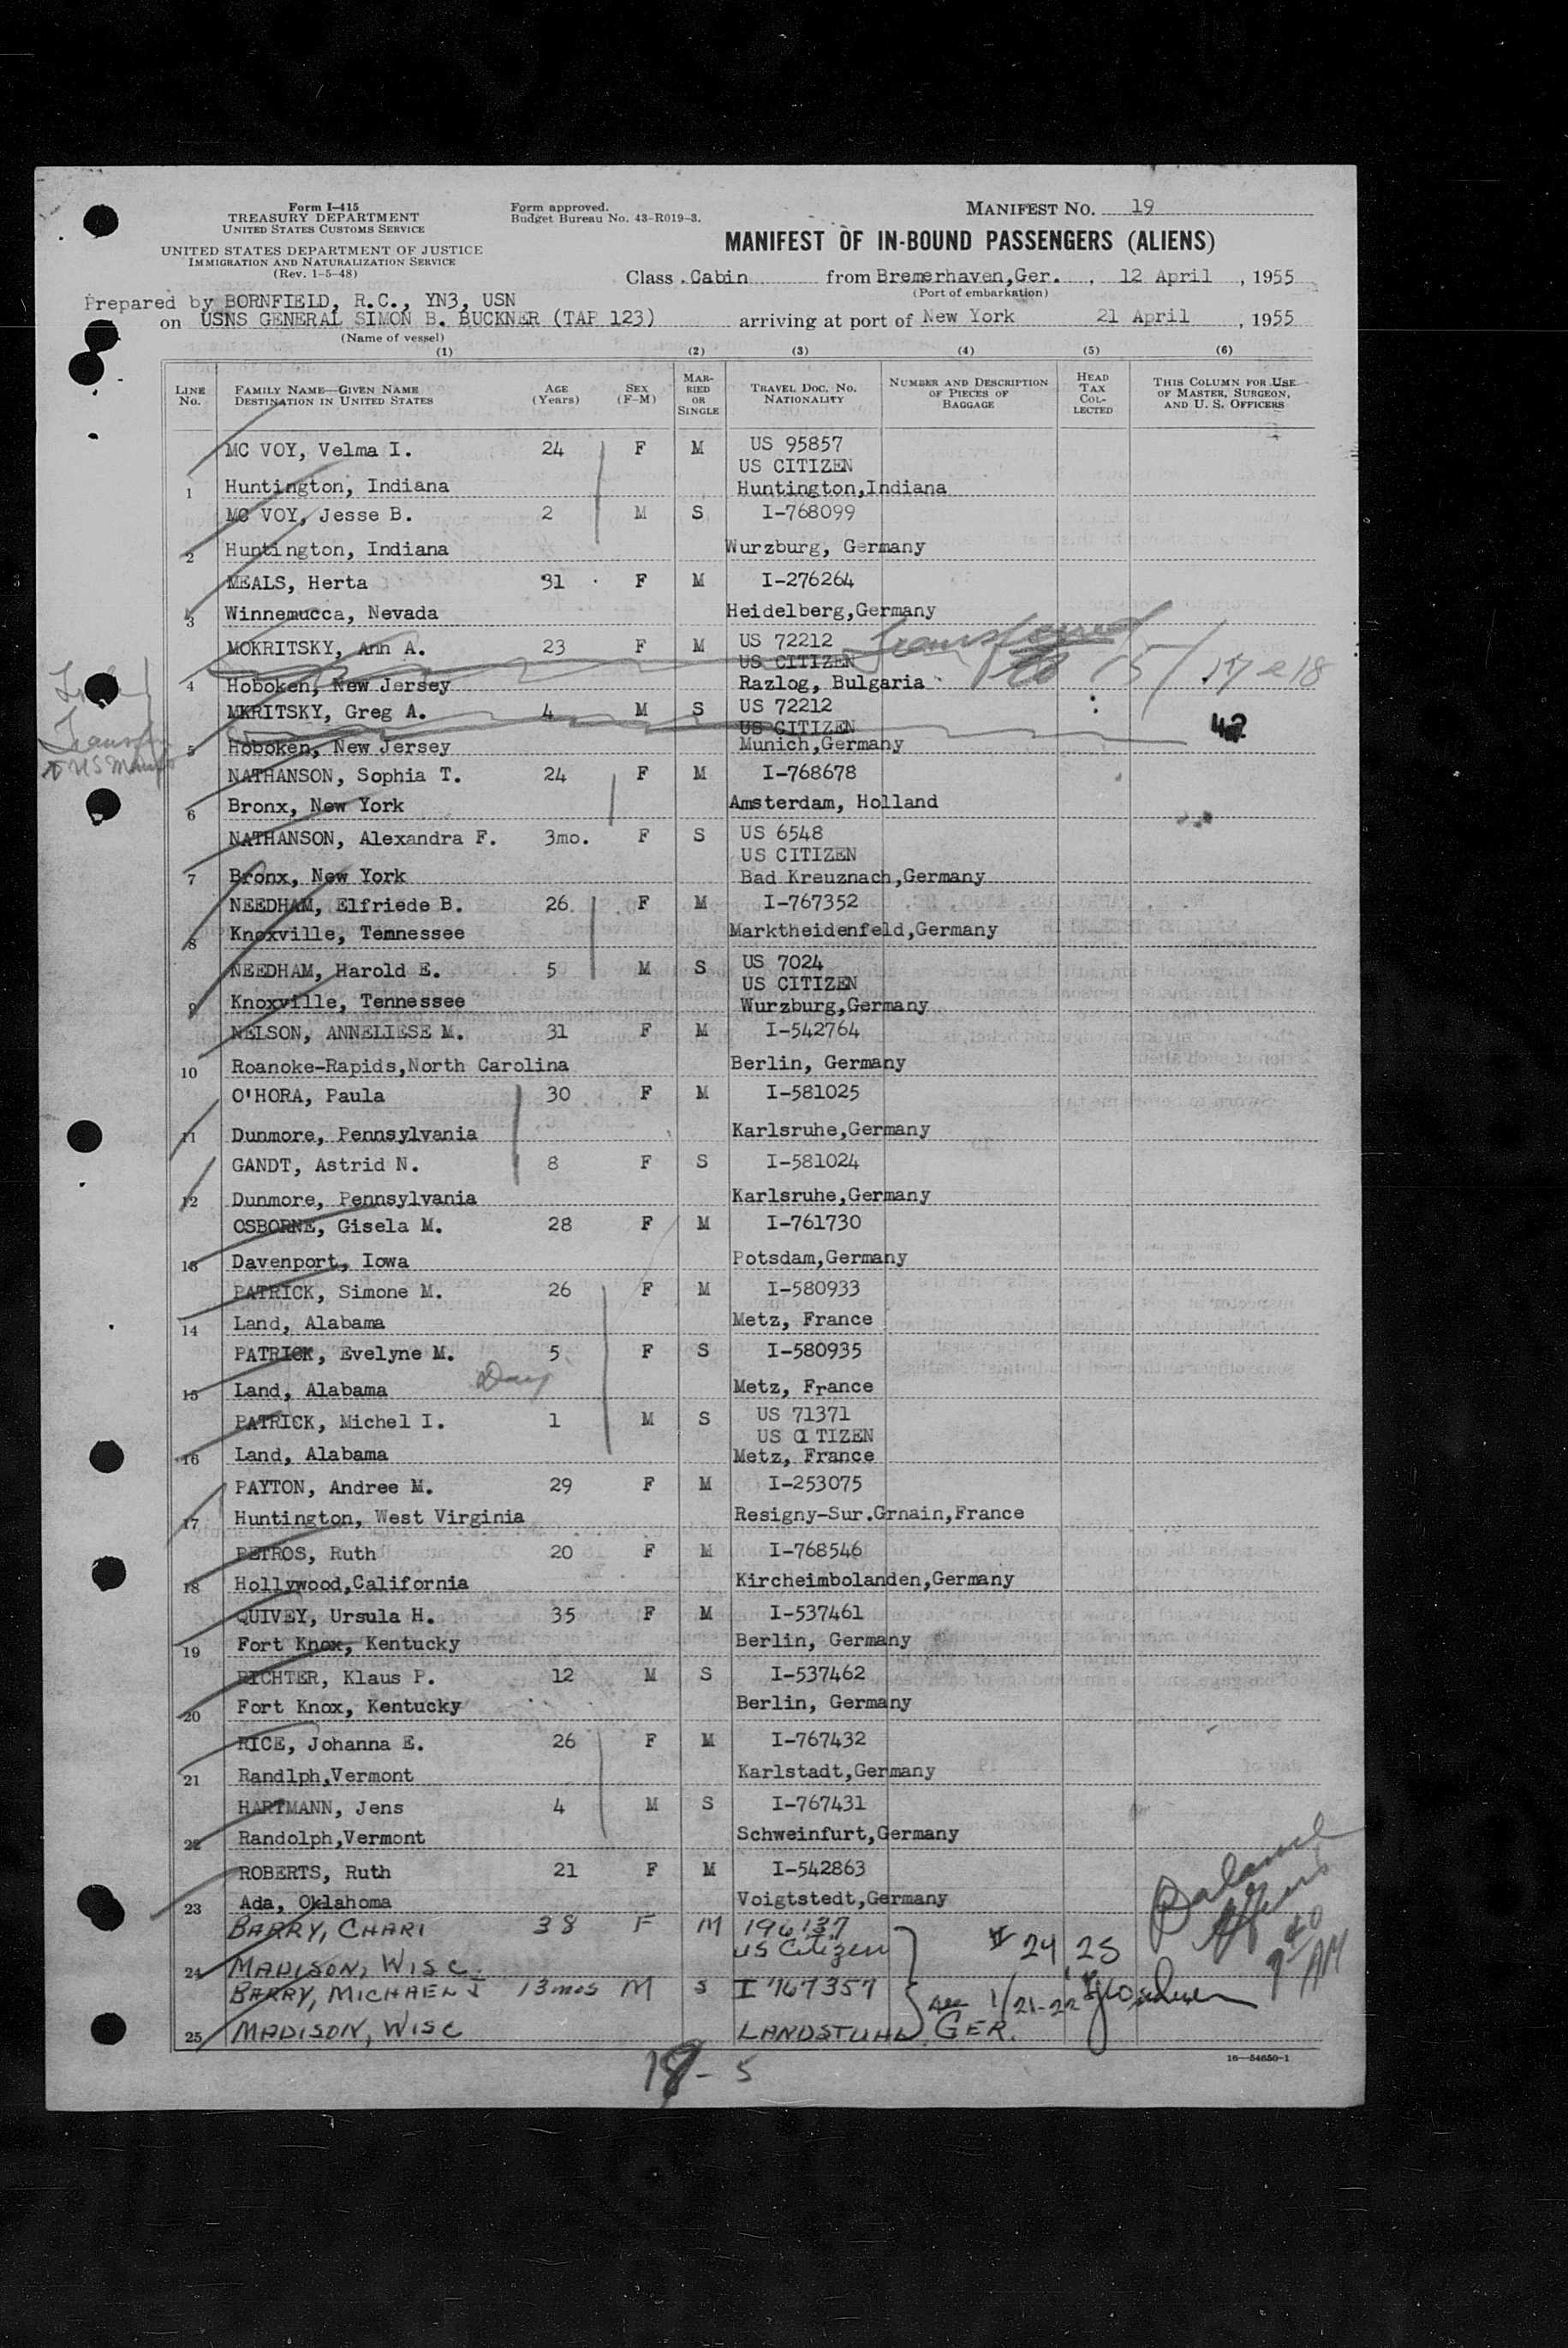 Form I-415
TREASURY DEPARTMENT
UNITED STATES CUSTOMS SERVICE
UNITED STATES DEPARTMENT OF JUSTICE
IMMIGRATION AND NATURALIZATION SERVICE
(Rev. 1-5-48)
Form approved.
Budget Bureau No. 43-R019-3.
MANIFEST NO. 19
MANIFEST OF IN-BOUND PASSENGERS (ALIENS)
Class Cabin from Bremerhaven,Ger. , 12 April , 1955
(Port of embarkation)
Prepared by BORNFIELD, R.C., YN3, USN
on USNS GENERAL SIMON B. BUCKNER (TAP 123) arriving at port of New York 21 April , 1955
(Name of vessel)
(1) (2) (3) (4) (5) (6)
LINE No. FAMILY NAME—GIVEN NAME DESTINATION IN UNITED STATES AGE (Years) SEX (F-M) MARRIED OR SINGLE TRAVEL DOC. NO. NATIONALITY NUMBER AND DESCRIPTION OF PIECES OF BAGGAGE HEAD TAX COLLECTED THIS COLUMN FOR USE OF MASTER, SURGEON, AND U. S. OFFICERS
MC VOY, Velma I. 24 F M US 95857
US CITIZEN
1 Huntington, Indiana Huntington,Indiana
MC VOY, Jesse B. 2 M S I-768099
2 Huntington, Indiana Wurzburg, Germany
MEALS, Herta 31 F M I-276264
3 Winnemucca, Nevada Heidelberg,Germany
MOKRITSKY, Ann A. 23 F M US 72212 Transferred
US CITIZEN to 15/
4 Hoboken, New Jersey Razlog, Bulgaria
MKRITSKY, Greg A. 4 M S US 72212
US CITIZEN 42
5 Hoboken, New Jersey Munich,Germany
NATHANSON, Sophia T. 24 F M I-768678
6 Bronx, New York Amsterdam, Holland
NATHANSON, Alexandra F. 3mo. F S US 6548
US CITIZEN
7 Bronx, New York Bad Kreuznach,Germany
NEEDHAM, Elfriede B. 26 F M I-767352
8 Knoxville, Temnessee Marktheidenfeld,Germany
NEEDHAM, Harold E. 5 M S US 7024
US CITIZEN
9 Knoxville, Tennessee Wurzburg,Germany
NELSON, ANNELIESE M. 31 F M I-542764
10 Roanoke-Rapids,North Carolina Berlin, Germany
O'HORA, Paula 30 F M I-581025
11 Dunmore, Pennsylvania Karlsruhe,Germany
GANDT, Astrid N. 8 F S I-581024
12 Dunmore, Pennsylvania Karlsruhe,Germany
OSBORNE, Gisela M. 28 F M I-761730
13 Davenport, Iowa Potsdam,Germany
PATRICK, Simone M. 26 F M I-580933
14 Land, Alabama Metz, France
PATRICK, Evelyne M. 5 F S I-580935
15 Land, Alabama Metz, France
PATRICK, Michel I. 1 M S US 71371
US CITIZEN
16 Land, Alabama Metz, France
PAYTON, Andree M. 29 F M I-253075
17 Huntington, West Virginia Resigny-Sur.Grnain,France
PETROS, Ruth 20 F M I-768546
18 Hollywood,California Kircheimbolanden,Germany
QUIVEY, Ursula H. 35 F M I-537461
19 Fort Knox, Kentucky Berlin, Germany
RICHTER, Klaus P. 12 M S I-537462
20 Fort Knox, Kentucky Berlin, Germany
RICE, Johanna E. 26 F M I-767432
21 Randlph,Vermont Karlstadt,Germany
HARTMANN, Jens 4 M S I-767431
22 Randolph,Vermont Schweinfurt,Germany
ROBERTS, Ruth 21 F M I-542863
23 Ada, Oklahoma Voigtstedt,Germany
BARRY, CHARI 38 F M 196137
US Citizen # 24, 25
24 MADISON, WISC.
BARRY, MICHAEL J 13mos M S I 767357
25 MADISON, WISC LANDSTUHL, GER.
18- 5
16—54650-1